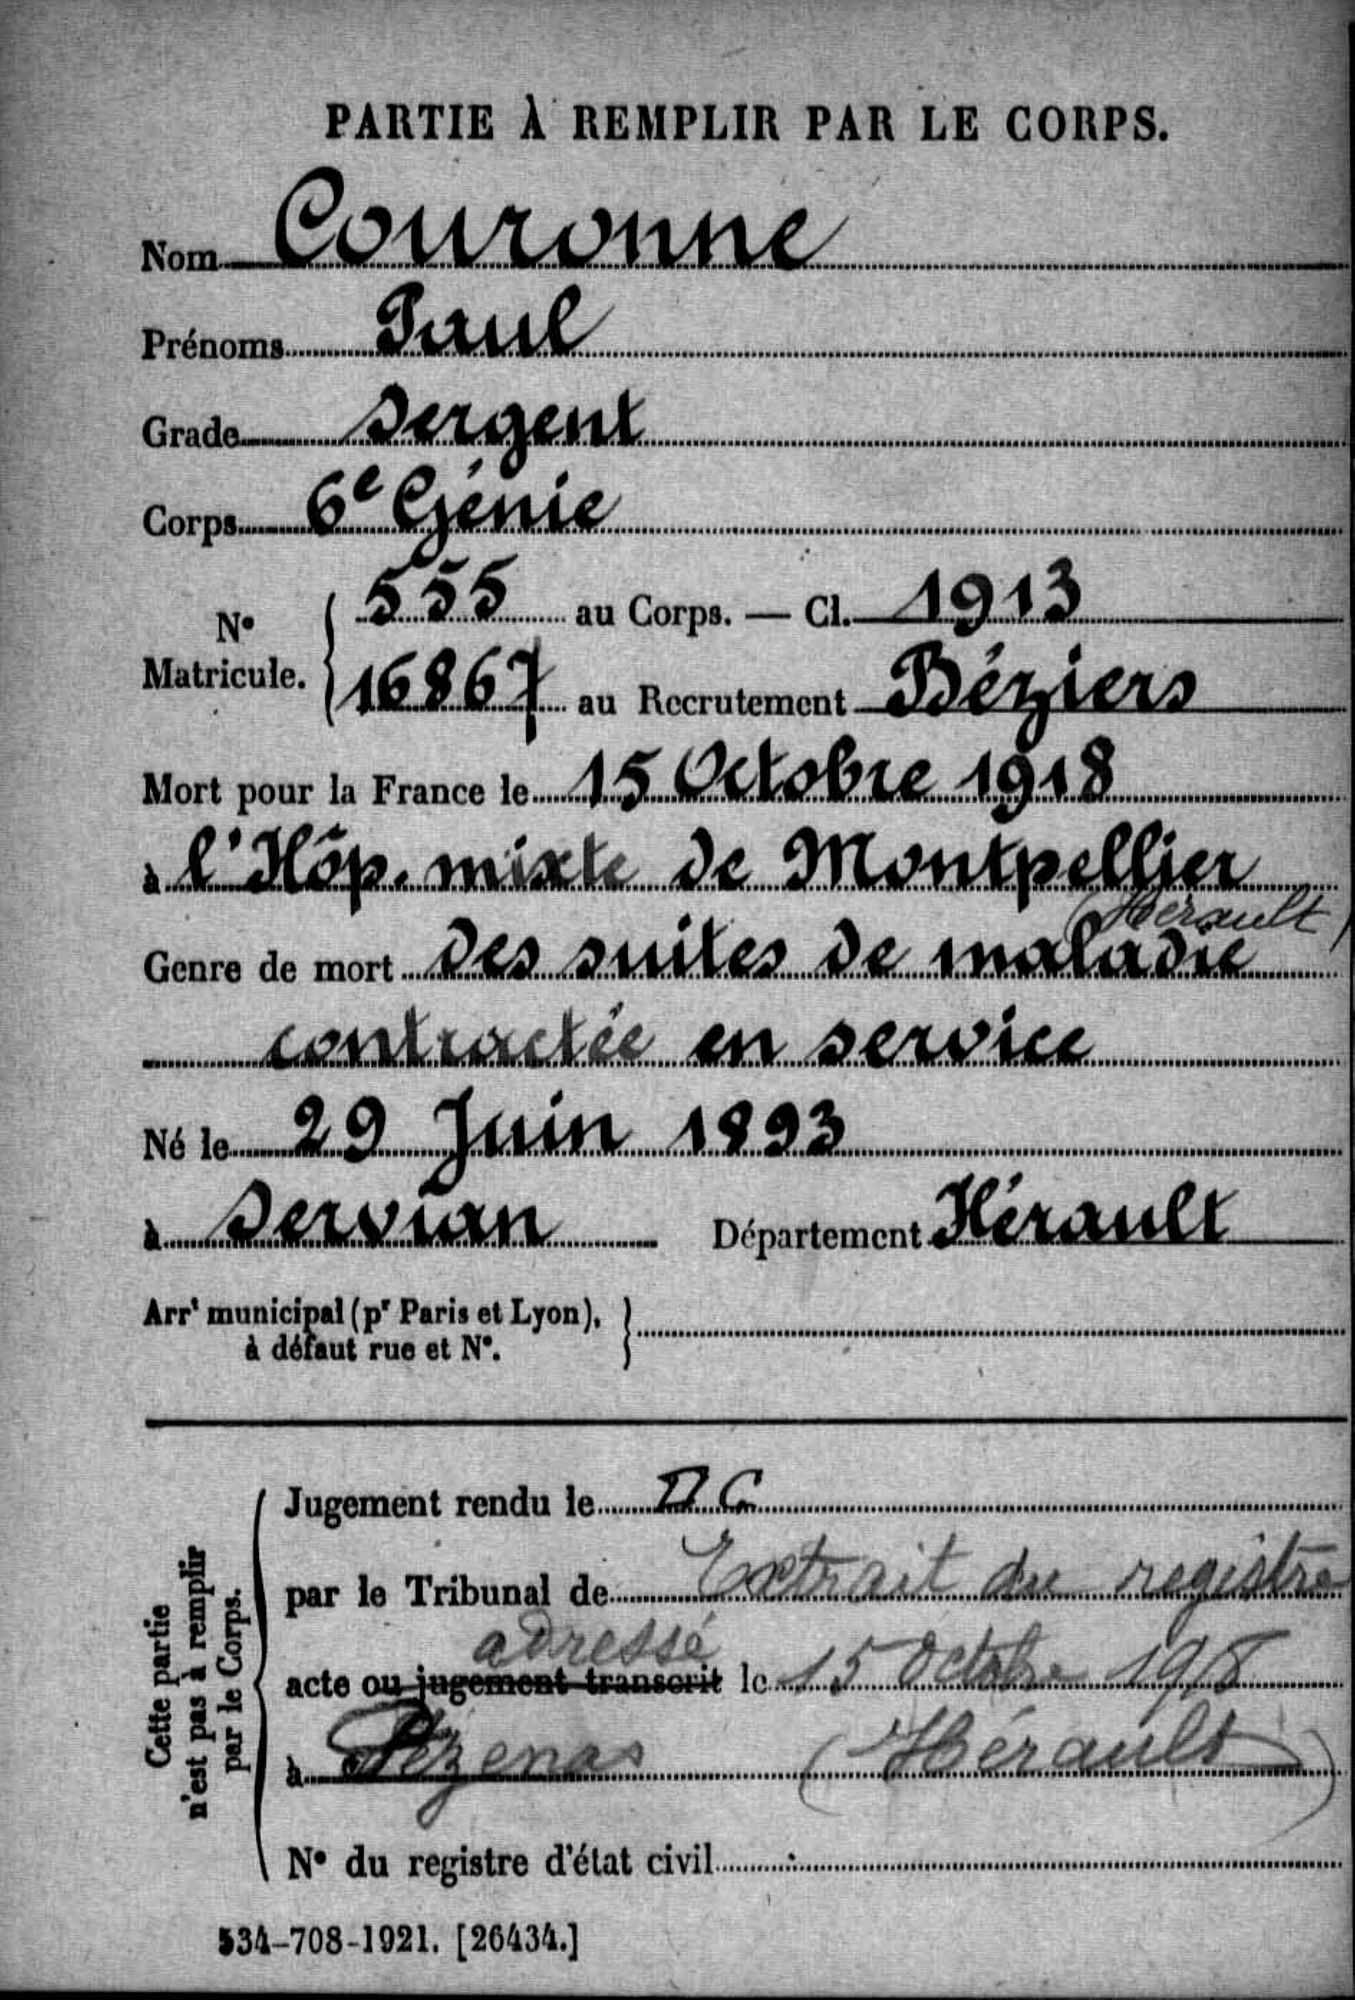 PARTIE À REMPLIR PAR LE CORPS.
Nom Couronne
Prénoms Paul
Grade Sergent
Corps 6e Génie
N° Matricule. { 555 au Corps. — Cl. 1913
16867 au Recrutement Béziers
Mort pour la France le 15 Octobre 1918
à l'Hôp. mixte de Montpellier
(Hérault)
Genre de mort des suites de maladie
contractée en service
Né le 29 Juin 1893
à Servian Département Hérault
Arrt municipal (pr Paris et Lyon),
à défaut rue et N°.
Cette partie
n'est pas à remplir
par le Corps.
Jugement rendu le
par le Tribunal de Extrait du registre
adressé
acte ou jugement transcrit le 15 Octobre 1918
à Pézenas (Hérault)
N° du registre d'état civil
534-708-1921. [26434.]